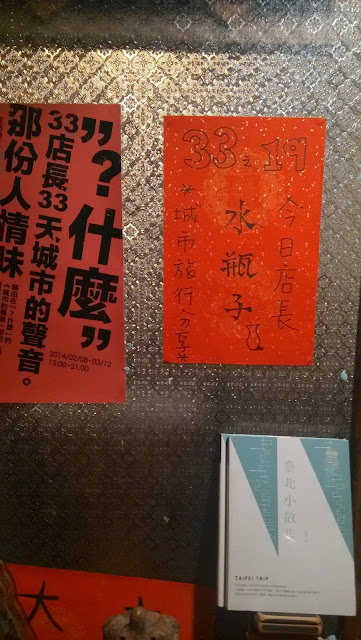 ”？什麼”
33店長33天,城市的聲音。
那份人情味
2014/02/08-03/12
15:00-21:00
33之19
今日店長
水瓶子
*城市旅行分享*
臺北小散步
TAIPEI TRIP
大